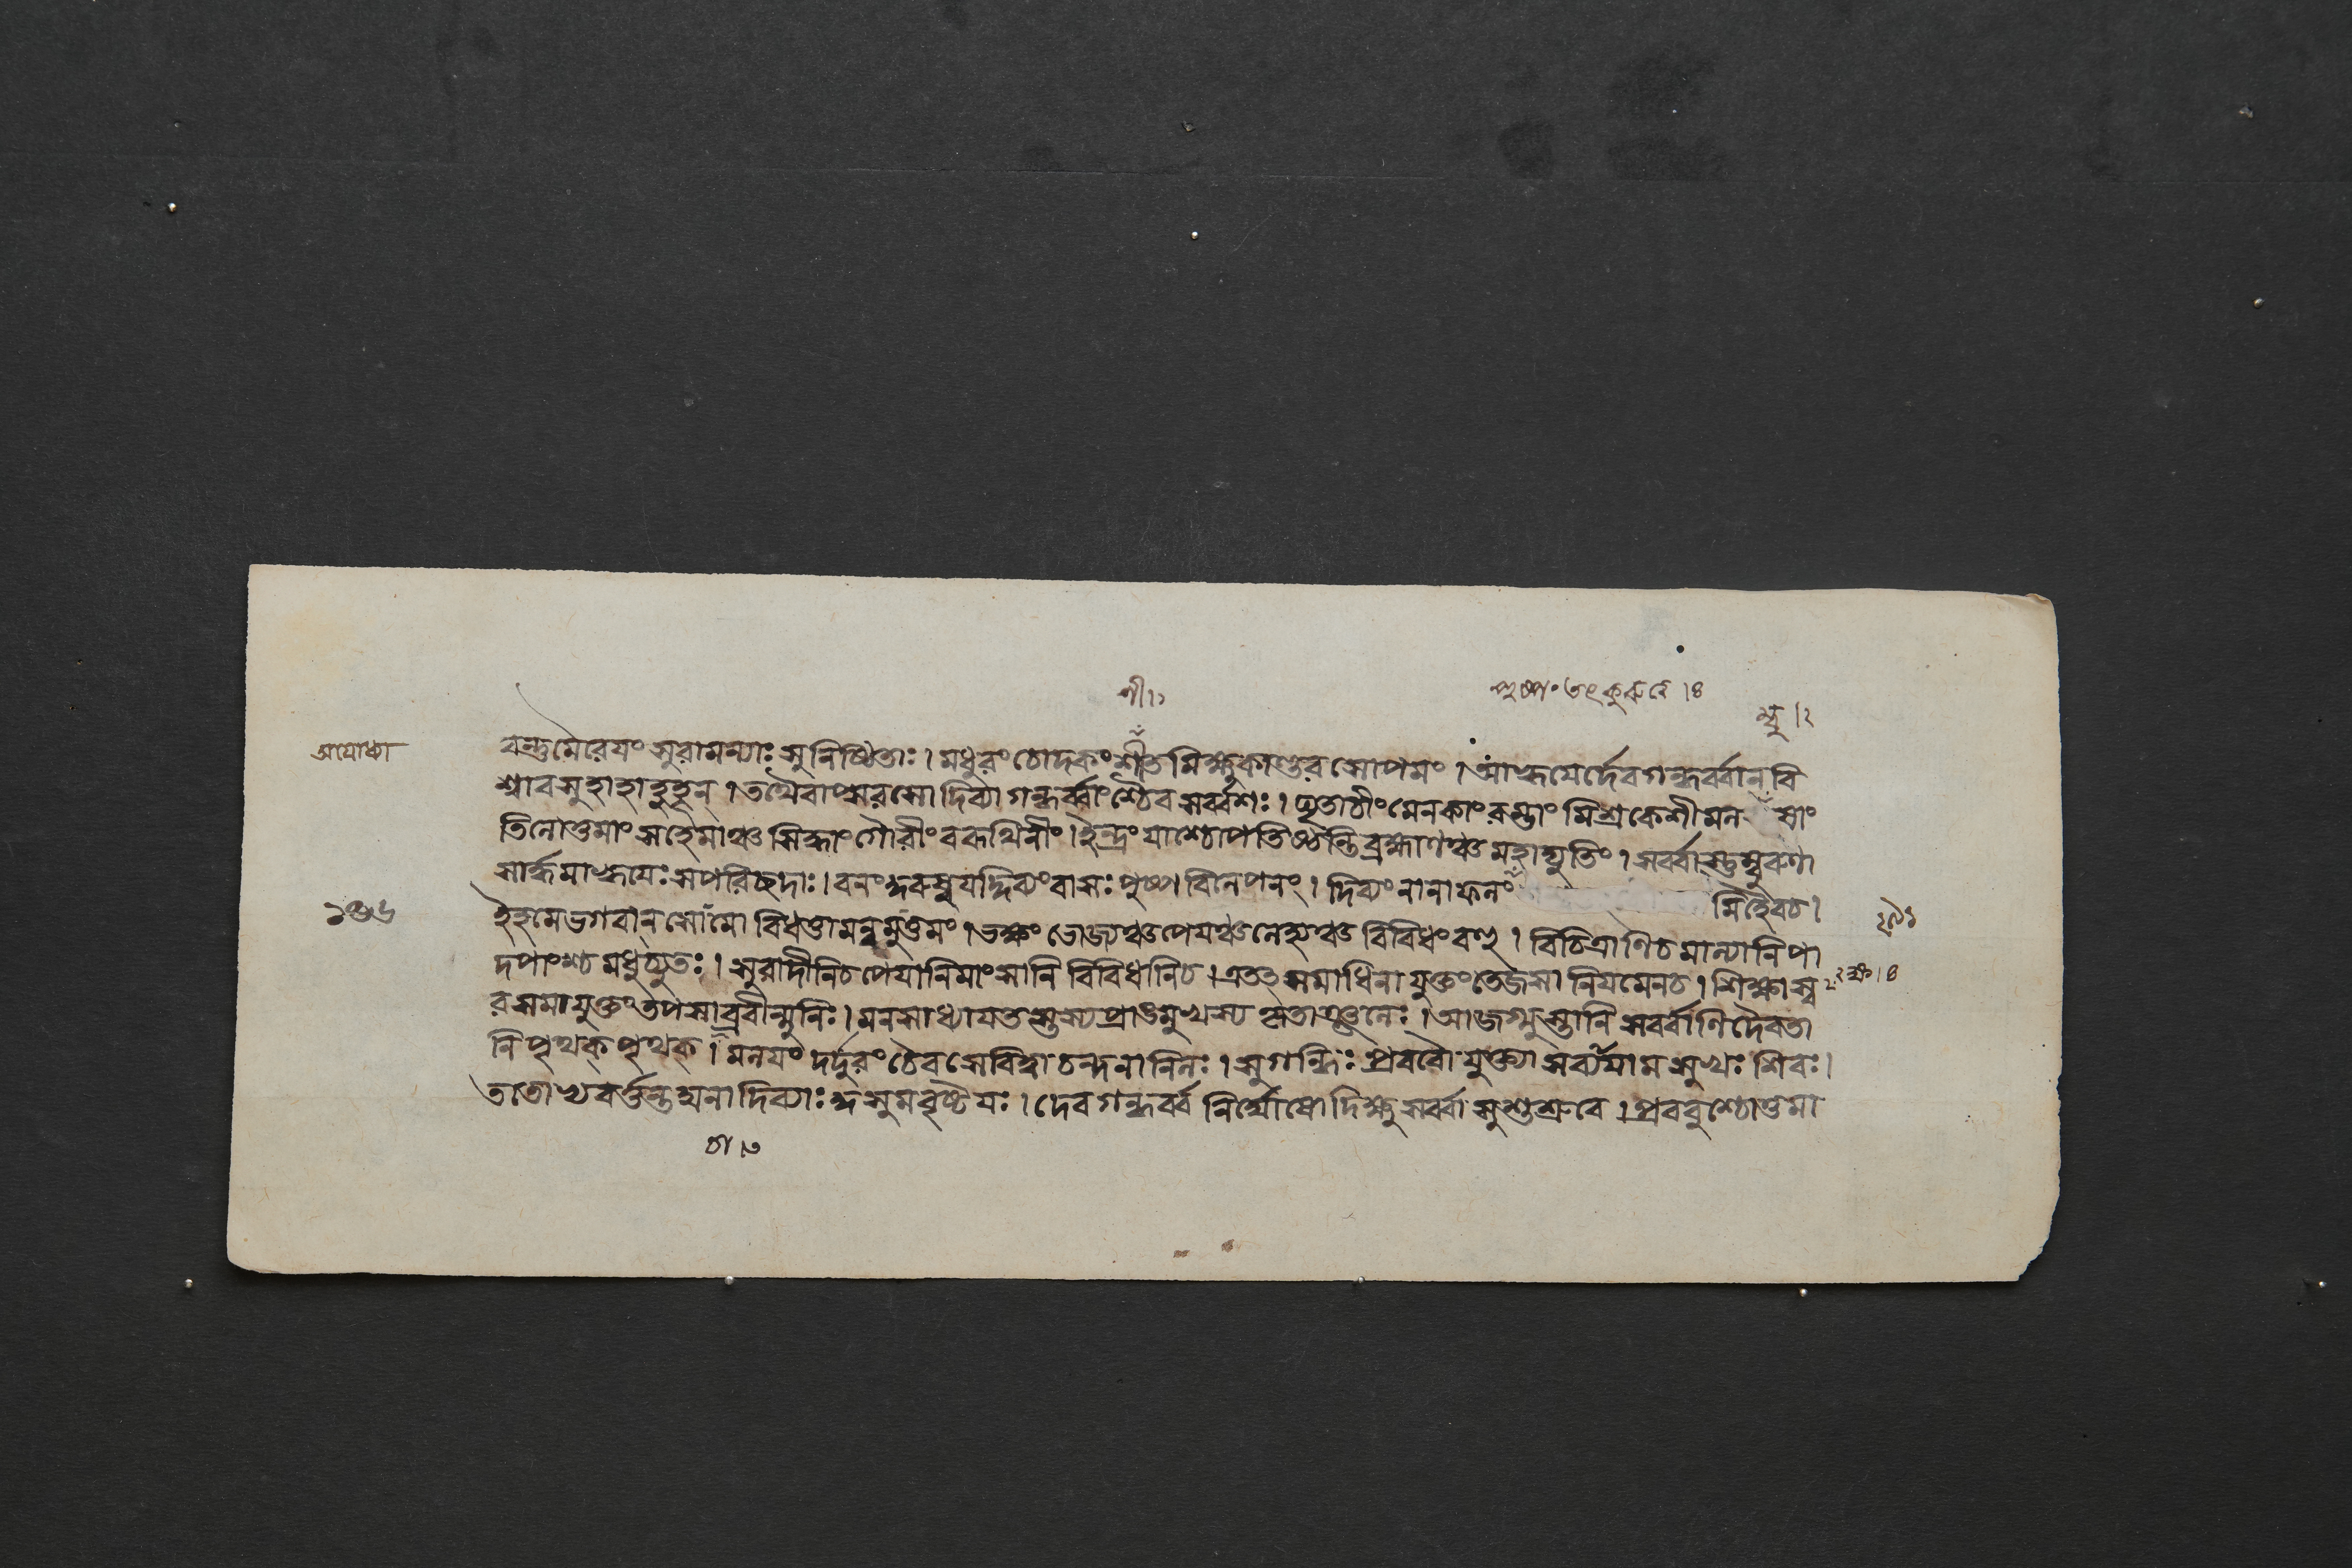 শী ১
পুষ্পং তৎ কুরুতে । ৪
ম্বু । ২
অযোধ্যা
বন্তুমৈরেযং সুরামন্যাঃ সুনিষ্ঠিতাঃ । মধুরং চোদকং শীতমিক্ষুকাণ্ডরসোপমং । আহ্বযের্দেবগন্ধর্ব্বান্ বি
শ্বাবসুহাহাহুহূন্ । তথৈবাপ্সরসো দিব্যা গন্ধর্ব্বাংশ্চৈব সর্ব্বশঃ । ঘৃতাচীং মেনকাং রম্ভাং মিশ্রকেশীমল ষাং
তিলোত্তমাং সহেমাঞ্চ গৌরীং বরূথিনীং । ইন্দ্রং যাশ্চোপতিষ্ঠন্তি ব্রহ্মাণঞ্চ মহাদ্যুতিং । সর্ব্বাস্তুম্বুরুণা
সার্দ্ধমাহ্বযেঃ সপরিচ্ছদাঃ । বনং কুরুষু যদ্দিব্যং বাসঃ পুষ্পবিলেপনং । দিব্যং নানাফলং মিহৈবচ ।
১৩৬
ইহমে ভগবান্ সোমো বিধত্তামন্নমুত্তমং । ভক্ষং ভোজ্যঞ্চপেযঞ্চলেহ্যঞ্চ বিবিধং বহু । বিচিত্রাণিচ মাল্যানি পা
দপাংশ্চ মধুচ্যুতঃ । সুরাদীনিচ পেযানি মাংসানি বিবিধানিচ । এতত্তু সমাধিনা যুক্তং তেজসা নিযমেনচ । শিক্ষাস্ব
রসমাযুক্তং তপসাব্রবীন্মুনিঃ । মনসাধ্যাযতস্তস্য প্রাঙমুখস্য কৃতাঞ্জলেঃ । আজগ্মুস্তানি সর্ব্বাণি দৈবতা
নি পৃথক্ পৃথক্ । মলযং দর্দুরং চৈব সেবিত্বা চন্দনানিলঃ । সুগন্ধিঃ প্রববৌ যুক্ত্যা সুখঃ শিবঃ ।
ততোভ্যবর্ত্তন্ত ঘনা দিব্যাঃ কুসুমবৃষ্টযঃ । দেবগন্ধর্ব্বনির্ঘোষো দিক্ষু সর্ব্বাসু শুশ্রুবে । প্রববুশ্চোত্তমা